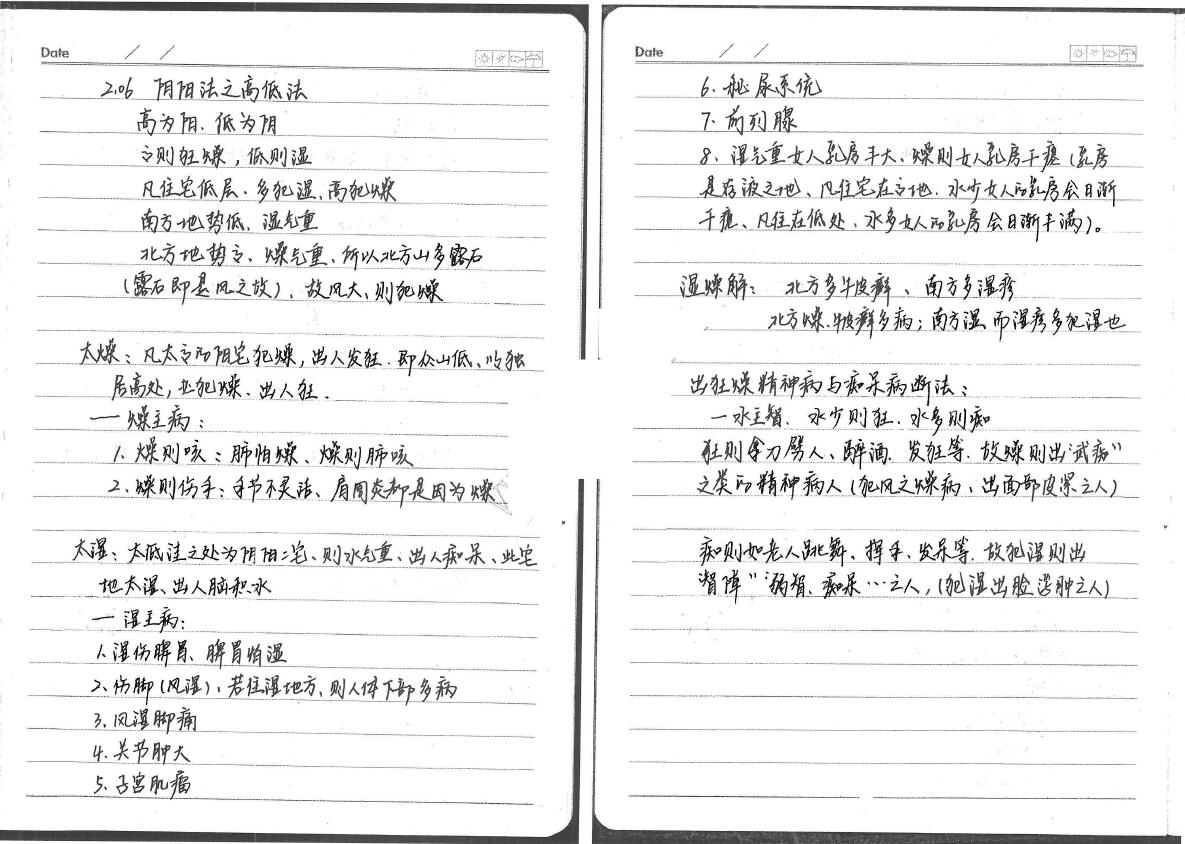 Date / /
2.06 阴阳法之高低法
高为阳、低为阴
高则狂燥，低则湿
凡住宅低层、多犯湿、高犯燥
南方地势低、湿气重
北方地势高、燥气重、所以北方山多露石
（露石即是风之故）、故风大、则犯燥
太燥：凡太高的阴宅犯燥，出人发狂、即众山低、以独
居高处，业犯燥、出人狂.
一 燥主病：
1、燥则咳：肺怕燥、燥则肺咳
2、燥则伤手：手节不灵活、肩周炎都是因为燥
太湿：太低洼之处为阴阳二宅、则水气重、出人痴呆、此宅
地太湿、出人脑积水
一 湿主病：
1、湿伤脾胃、脾胃怕湿
2、伤脚（风湿）、若住湿地方、则人体下部多病
3、风湿脚痛
4、关节肿大
5、子宫肌瘤
Date / /
6、泌尿系统
7、前列腺
8、湿气重女人乳房丰大、燥则女人乳房干瘪（乳房
是存液之地、凡住宅在高地、水少女人的乳房会日渐
干瘪、凡住在低处、水多女人的乳房会日渐丰满）。
湿燥解： 北方多牛皮癣、南方多湿疹
北方燥、牛皮癣多病；南方湿、而湿疹多犯湿也
出狂燥精神病与痴呆病断法：
一水主智、水少则狂、水多则痴
狂则拿刀劈人、醉酒、发狂等、故燥则出“武痴”
之类的精神病人（犯风之燥病、出面部皮黑之人）
痴则如老人跳舞、挥手、发呆等、故犯湿则出
智障”弱智、痴呆…之人，（犯湿出脸浮肿之人）